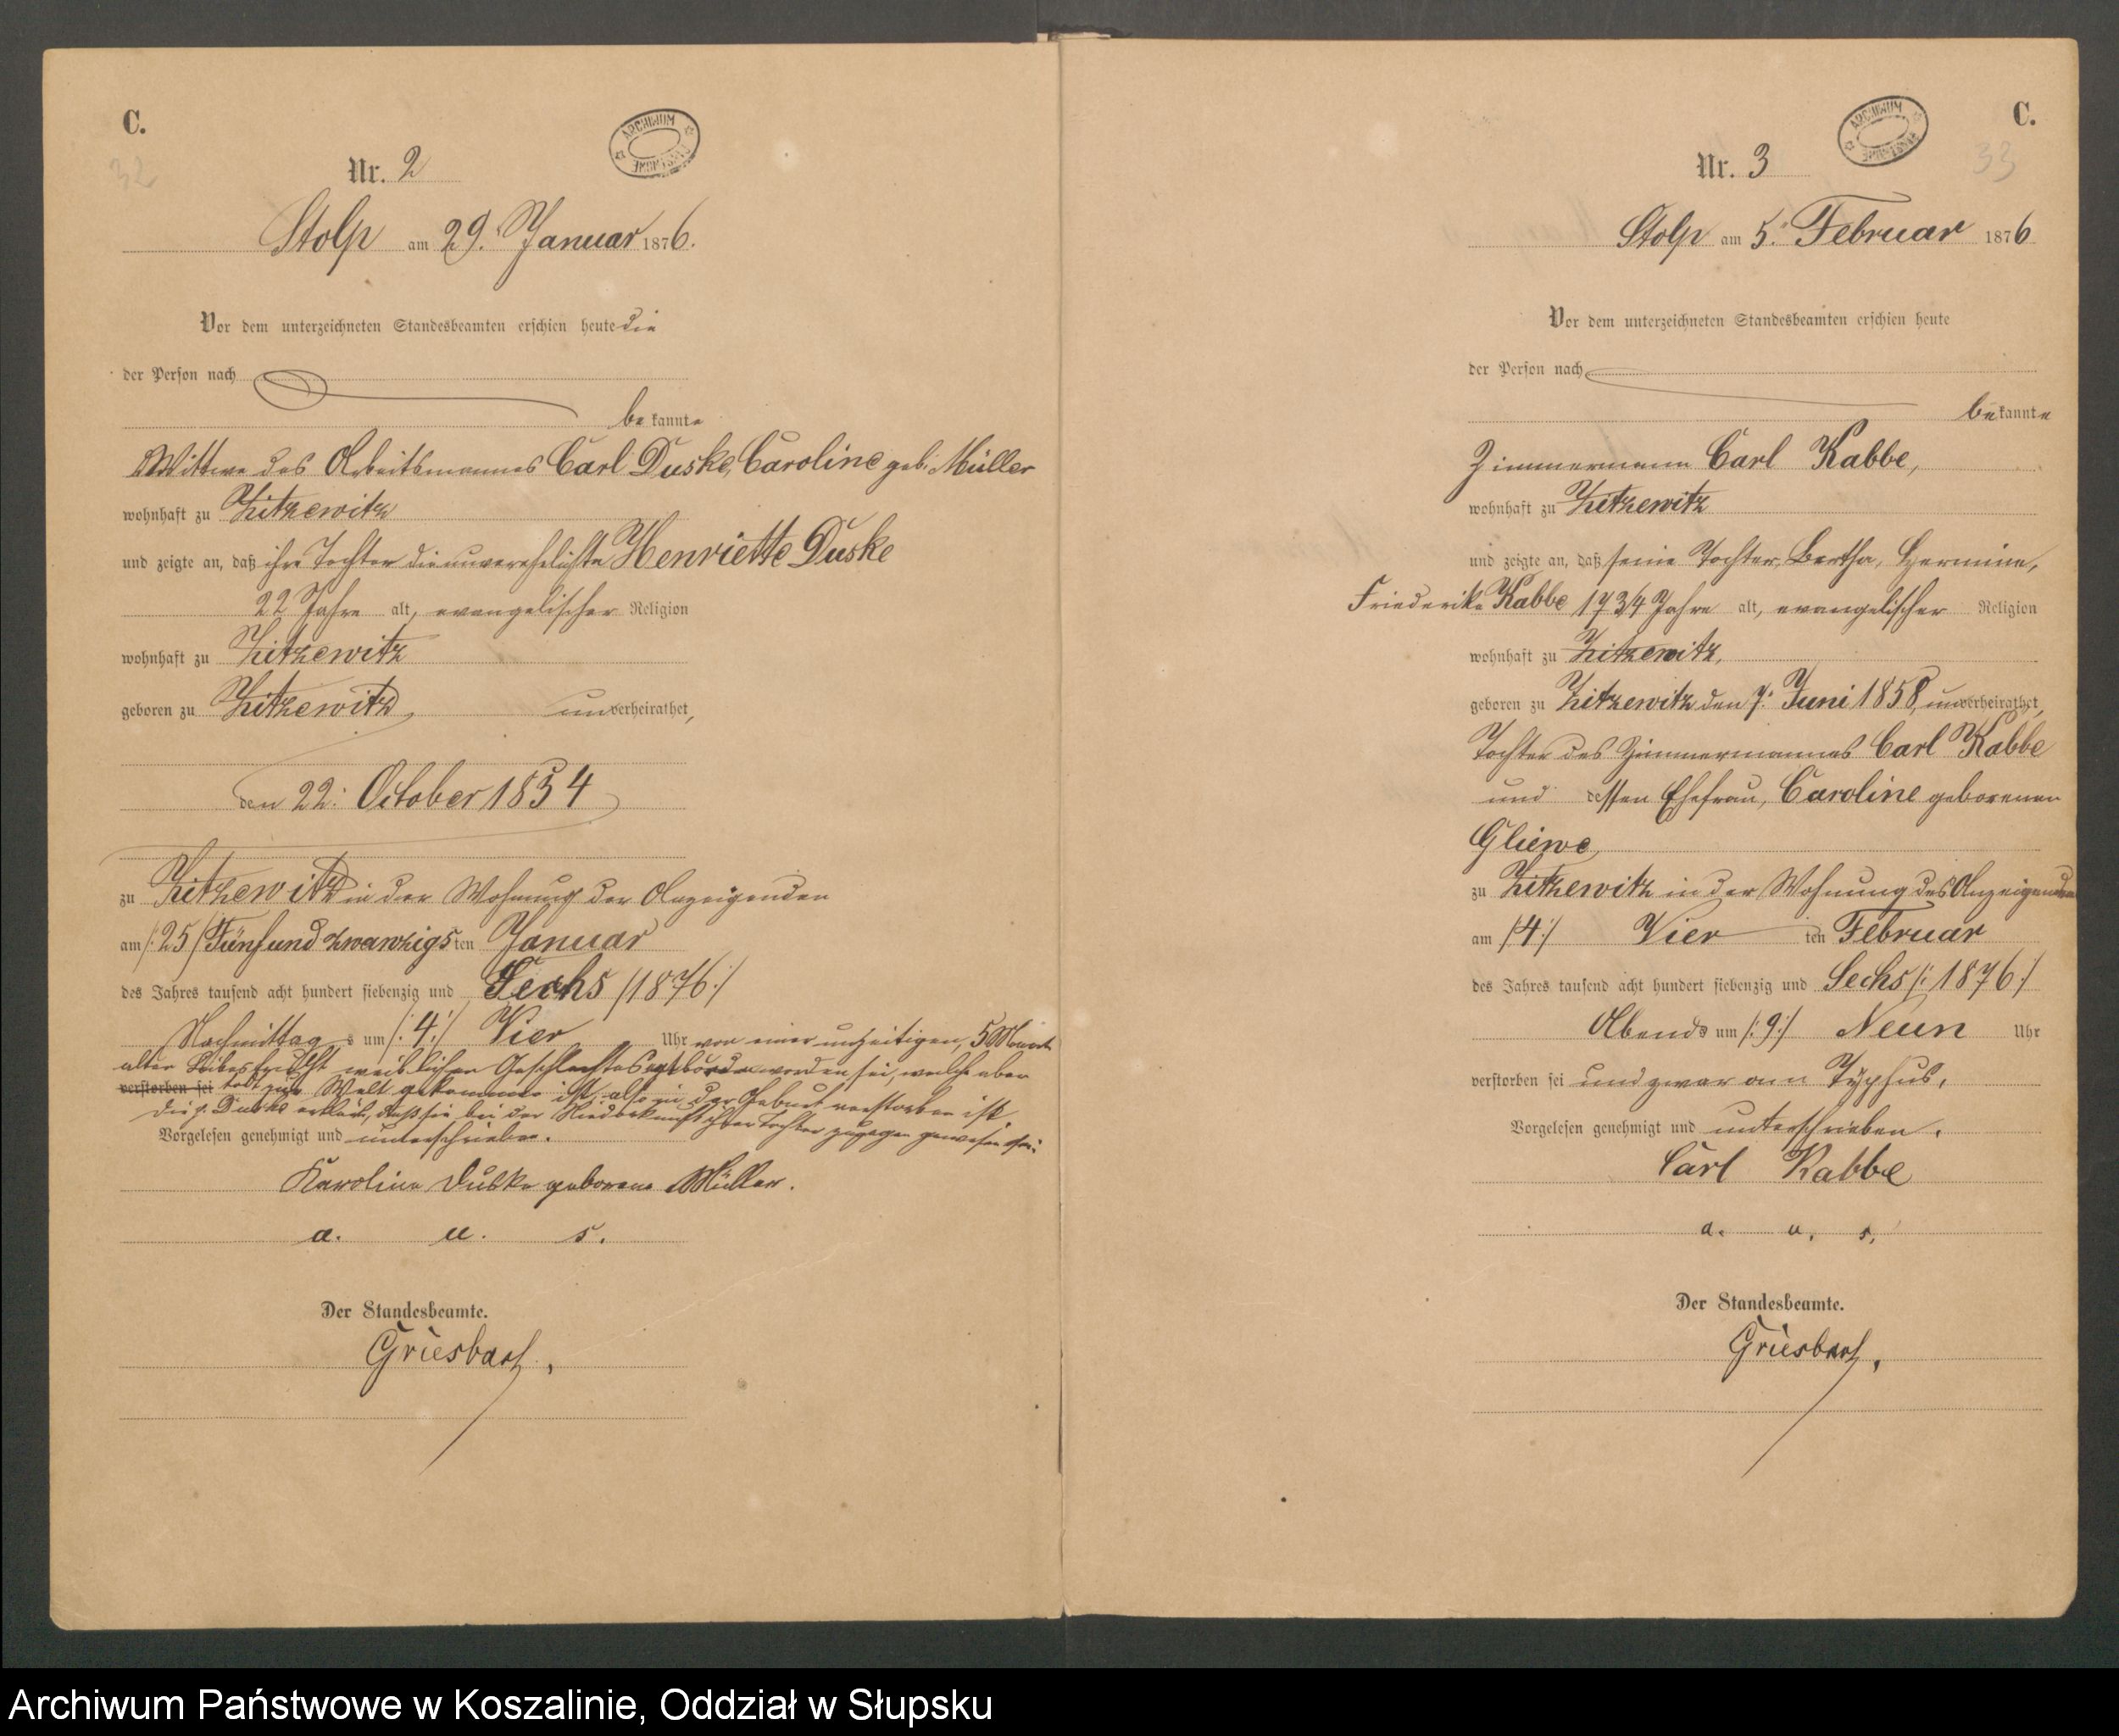 C.
32
ARCHIWUM
Nr. 2
Stolp am 29. Januar 1876.
Vor dem unterzeichneten Standesbeamten erschien heute die
der Person nach
bekannte
Wittwe des Arbeitsmannes Carl Duske, Caroline geb. Müller
wohnhaft zu Zitzewitz
und zeigte an, daß ihre Tochter die unverehelichte Henriette Duske
22 Jahre alt, evangelischer Religion
wohnhaft zu Zitzewitz
geboren zu Zitzewitz unverheirathet,
den 22. October 1834
zu Zitzewitz in der Wohnung der Anzeigenden
am /:25/ Fünfundzwanzigsten Januar
des Jahres tausend acht hundert siebenzig und Sechs /1876:/
Nachmittags um /:4:/ Vier Uhr von einer unzeitigen, 5 Monate
alten Leibesfrucht weiblichen Geschlechtes entbunden worden sei, welche aber
verstorben sei todt zur Welt gekommen ist, also in der Geburt verstorben ist.
Die p. Duske erklärt, daß sie bei der Niederkunft ihrer Tochter zugegen gewesen sei.
Vorgelesen genehmigt und unterschrieben.
Karoline Duske geborene Müller.
a. u. s.
Der Standesbeamte.
Griesbach,
C.
33
ARCHIWUM
Nr. 3
Stolp am 5. Februar 1876
Vor dem unterzeichneten Standesbeamten erschien heute
der Person nach
bekannte
Zimmermann Carl Kabbe,
wohnhaft zu Zitzewitz
und zeigte an, daß seine Tochter, Bertha, Hermine,
Friederike Kabbe 17 3/4 Jahre alt, evangelischer Religion
wohnhaft zu Zitzewitz,
geboren zu Zitzewitz den 7. Juni 1858, unverheirathet,
Tochter des Zimmermannes Carl Kabbe
und dessen Ehefrau, Caroline geborenen
Gliewe
zu Zitzewitz in der Wohnung des Anzeigenden
am /4:/ Vier ten Februar
des Jahres tausend acht hundert siebenzig und Sechs /:1876:/
Abends um /:9:/ Neun Uhr
verstorben sei und zwar am Typhus.
Vorgelesen genehmigt und unterschrieben.
Carl Kabbe
a. u. s.
Der Standesbeamte.
Griesbach,
Archiwum Państwowe w Koszalinie, Oddział w Słupsku